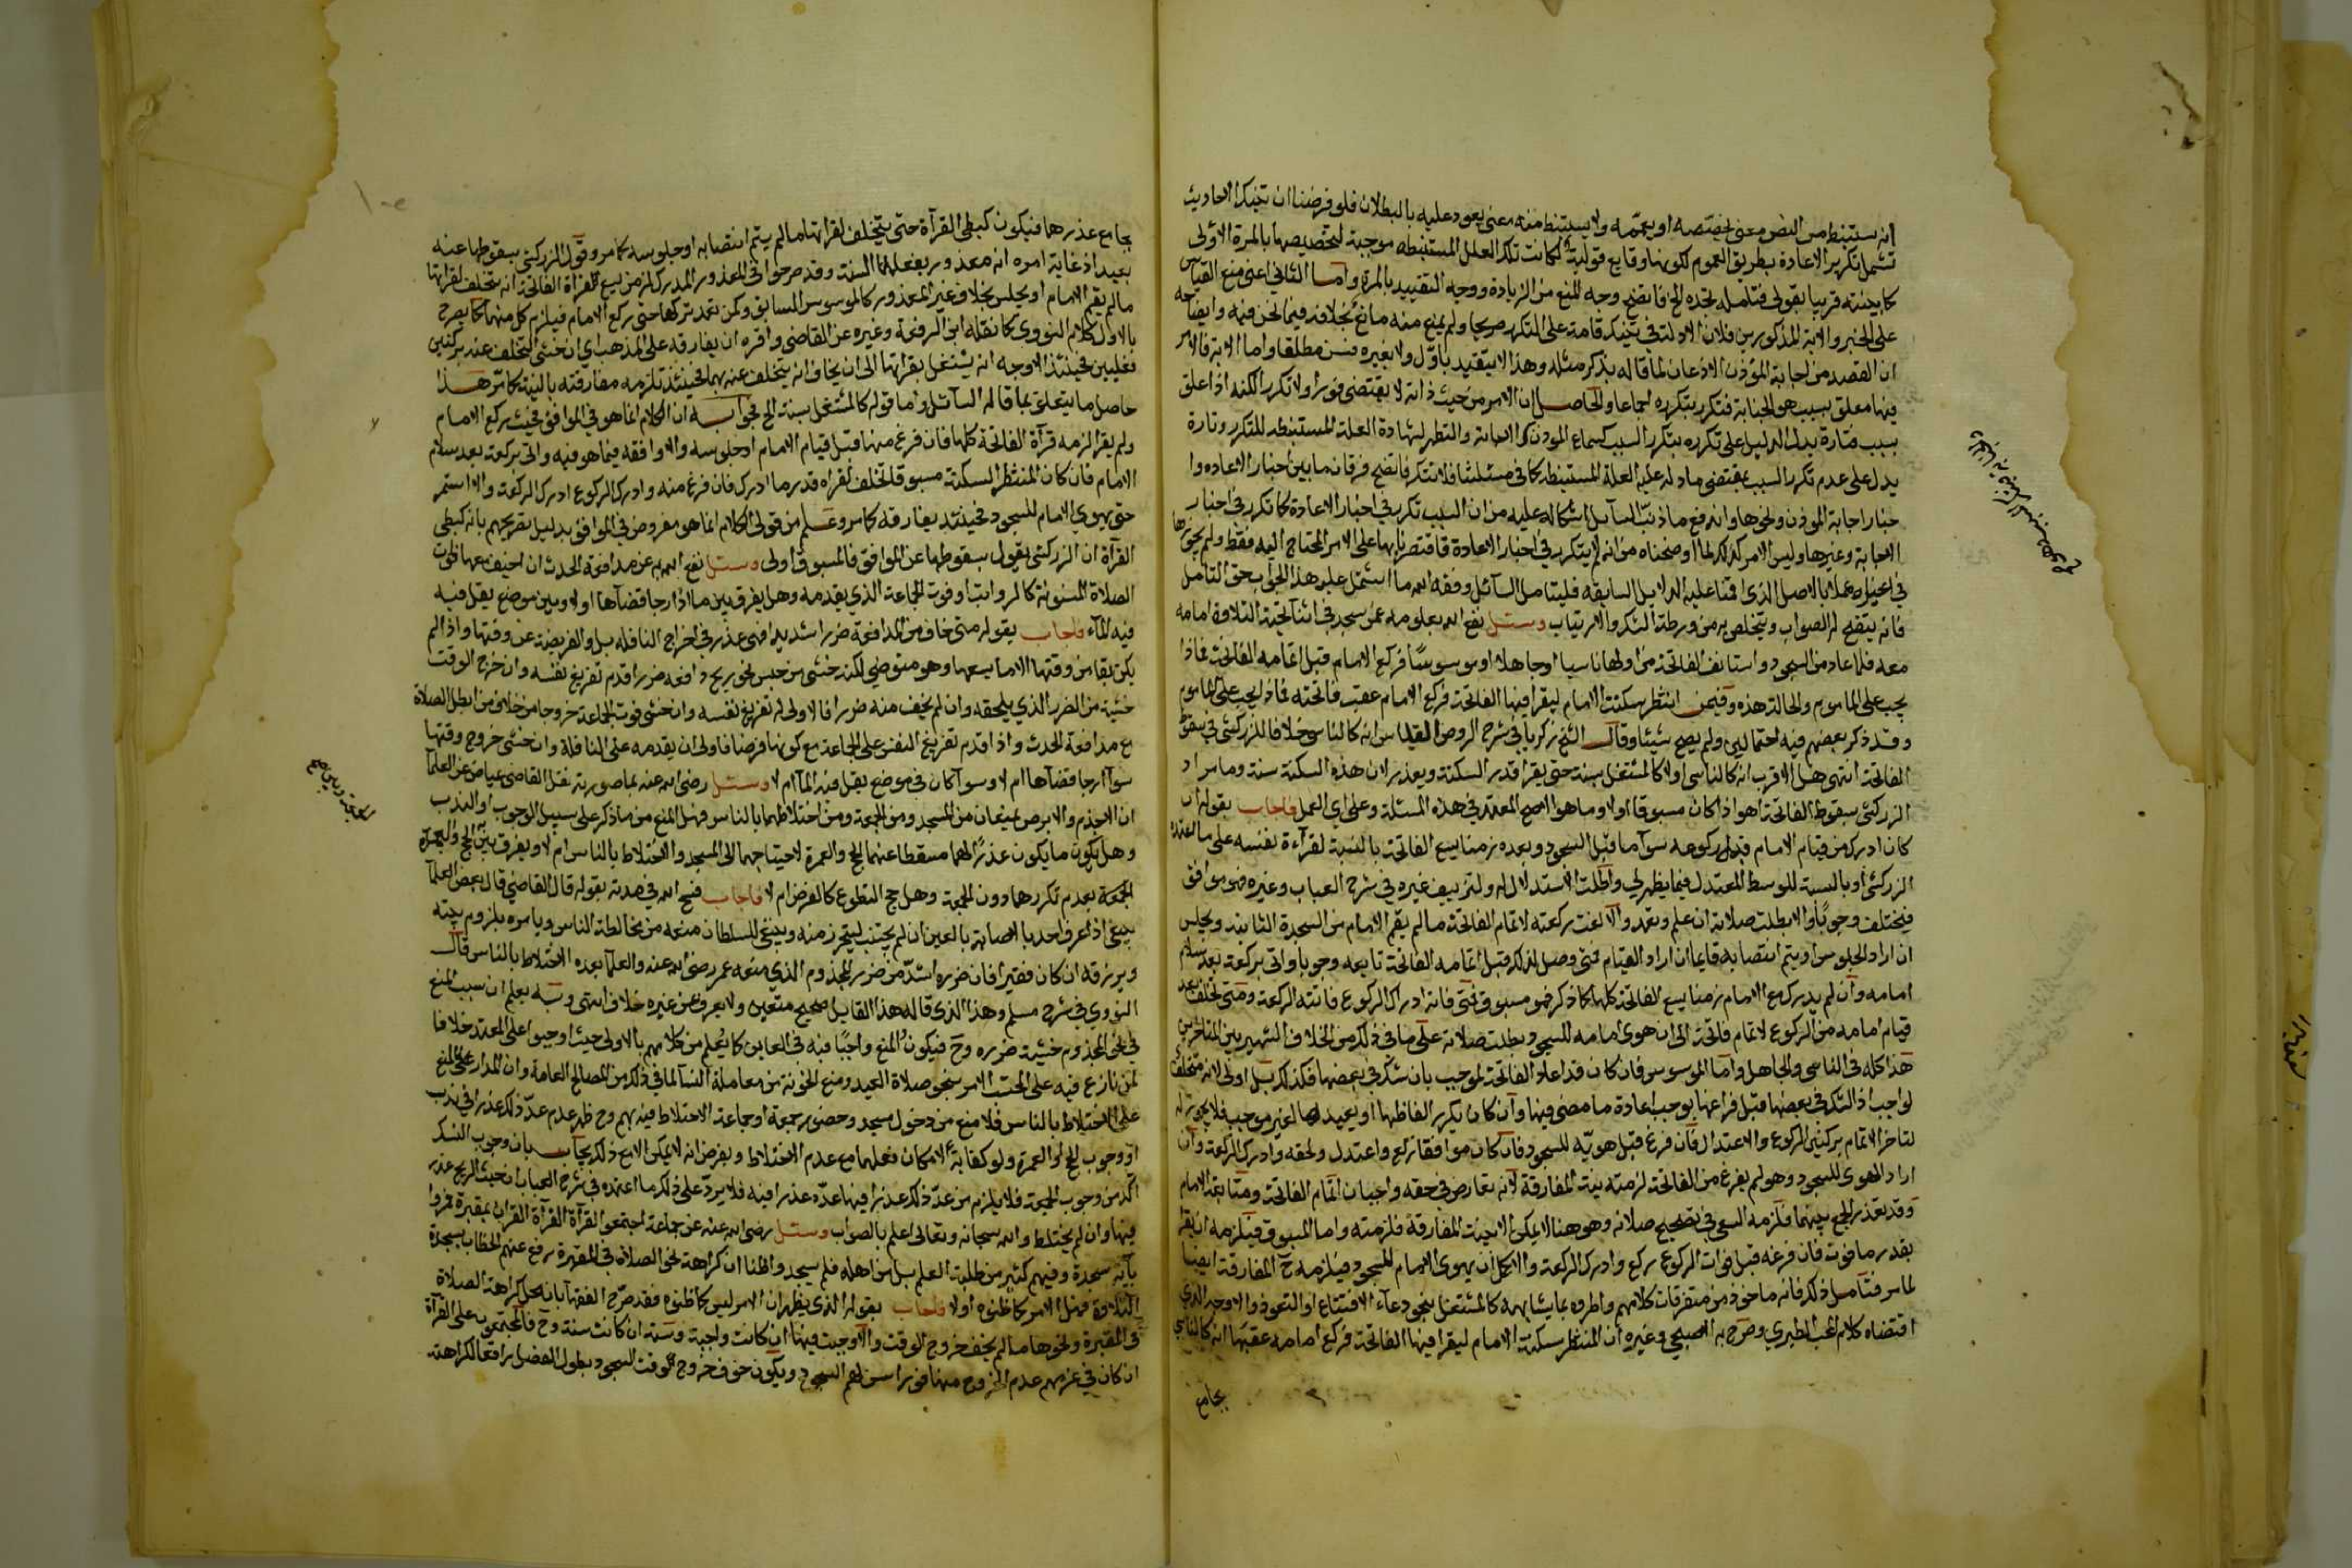 انه يستنبط من النص معنى يخصصه او يعممه ولا يستنبط منه معنى يعود عليه بالبطلان فلو فرضنا ان تينك الاحاديث
تشمل تكرير الاعادة بطريق العموم لكونها وقايع قولية لكانت تلك العلل المستنبطه موجبة لتخصيصها بالمرة الاولى
كما بينته قريبا بقولى فتامله تجده الخ فاتضح وجه المنع من الزيادة ووجه التقييد بالمرة واما الثانى اعنى منع القياس
على الخبر والاية المذكورين فلان الادلة في تينك قامت على التكرر صريحا ولم يمنع منه مانع بخلافه فيما نحن فيه وايضاحه
ان القصد من اجابة المؤذن الاذعان لما قاله بذكر مثله وهذا لا يتقيد باول ولا بغيره فسن مطلقا واما الاية فالامر
فيها معلق بسبب هو الجنابة فتكرر بتكرره اجماعا والحاصل ان الامر من حيث ذاته لا يقتضى فورا ولا تكررا لكنه اذا علق
بسبب فتارة يدل الدليل على تكرره بتكرر السبب كسماع المؤذن كالجنابة والتطهر لشهادة العلة المستنبطه للتكرر وتارة
يدل على عدم تكرر السبب بمقتضى ما دلت عليه العلة المستنبطه كما في مسئلتنا فلا تتكرر فاتضح فرقان ما بين اخبار الاعاده وا
خبار اجابة الموذن ونحوها واندفع ما ذنب السآيل اشكاله عليه من ان السبب تكرر في اخبار الاعادة كما تكرر في اخبار
الاجابة وغيرها وليس الامر كذلك لما اوضحناه من انه لم يتكرر في اخبار الاعادة فاقتصرنا بها على الامر المحتاج اليه فقط ولم يجوزها
في غيره عملا بالاصل الذى اقمنا عليه الدلايل السابقه فليتامل السآئل وفقه الله ما اشتمل عليه هذا الجواب حق التامل
فانه يتضح له الصواب ويتخلص به من ورطة الشك والارتياب وسئل نفع الله بعلومه عمن سجد في اثنا تحية التلاوة امامه
معه فلما عاد من السجود واستانف الفاتحة من اولها ناسيا او جاهلا او موسوسا فركع الامام قبل اتمامه الفاتحة فماذا
يجب على الماموم والحالة هذه وفيمن انتظر سكتة الامام ليقرا فيها الفاتحة فركع الامام عقب فاتحته فماذا يجب على الماموم
وقد ذكر بعضهم فيه احتمالين ولم يصح شيئا وقال الشيخ زكريا في شرح الروض القياس انه كالناسى خلافا للزركشى في سقوط
الفاتحة انتهى هل الاقرب انه كالناسى اولا كالمشتغل بسنة حتى يقرا قدر السكتة ويعذر لان هذه السكتة سنة وما مراد
الزركشى بسقوط الفاتحة اهو اذا كان مسبوقا اولا وما هو الاصح المعتمد في هذه المسئلة وعلى اى العمل فاجاب بقوله ان
كان ادرك من قيام الامام قبل ركوعه سوآ ما قبل السجود وبعده زمنا يسع الفاتحة بالنسبة لقرآءة نفسه على ما اعتمده
الزركشى او بالنسبة للوسط المعتدل فيما يظهر لي واطلت الاستدلال له ولتزييف غيره في شرح العباب وغيره فهو موافق
فيتخلف وجوبا والا بطلت صلاته ان علم وتعمد والا لغت ركعته لاتمام الفاتحة ما لم يقم الامام من السجدة الثانية ويجلس
ان اراد الجلوس او يتم انتصابه قايما ان اراد القيام فمتى وصل لذلك قبل اتمامه الفاتحة تابعه وجوبا واتى بركعة بعد سلام
امامه وان لم يدرك مع الامام زمنا يسع الفاتحة كلها كما ذكر فهو مسبوق فمتى فاته ادراك الركوع فاتته الركعة ومتى تخلف بعد
قيام امامه من الركوع لاتمام فاتحته الى ان هوى امامه للسجود بطلت صلاته على ما في ذلك من الخلاف الشهير بين المتاخرين
هذا كله في الناسى والجاهل واما الموسوس فان كان قد اعاد الفاتحة لموجب بان شك في بعضها فكذلك بل اولى لانه متخلف
لواجب اذ الشك في بعضها قبل فراغها يوجب اعادة ما مضى فيها وان كان يكرر الفاظها او يعيدها لغير موجب فلا يجوز له
التاخر لاتمام بركنين الركوع والاعتدال فان فرغ قبل هويه للسجود فان كان موافقا ركع واعتدل ولحقه وادرك الركعة وان
اراد الهوى للسجود وهو لم يفرغ من الفاتحة لزمته نية المفارقة لانه تعارض في حقه واجبان اتمام الفاتحة ومتابعة الامام
وقد تعذر الجمع بينهما فلزمه السعى في تصحيح صلاته وهو هنا لا يمكن الا بنية المفارقة فلزمته واما المسبوق فيلزمه ان يقرا
بقدر ما فوت فان فرغه قبل فوات الركوع ركع وادرك الركعة والا كمل ان يهوى الامام للسجود فيلزمه ح المفارقة ايضا
لما مر فتامل ذلك فانه ماخوذ من متفرقات كلامهم واطرده بما يشابهه كالمشتغل بنحو دعآء الافتتاح او التعوذ والاوجه الذي
اقتضاه كلام المحب الطبري وصرح به الاصبحي وغيره ان المنتظر سكتة الامام ليقرا فيها الفاتحة فركع امامه عقبها انه كالناسي
بجامع
بجامع عذرهما فيكون كبطئ القرآة حتى يتخلف لقراتها ما لم يتم انتصابه او جلوسه كما مر وقول الزركشى بسقوطها عنه
بعيد اذ غاية امره انه معذور بفعله لها السنة وقد صرحوا في المعذور المدرك لزمن يسع لقراة الفاتحة انه يتخلف لقراتها
ما لم يقم الامام او يجلس بخلاف غير المعذور كالموسوس السابق وكمن تعمد تركها حتى ركع الامام فيلزم كل منهما كما يصرح
بالاول كلام النووي كما نقله ابن الرفعة وغيره عن القاضى واقره ان يفارقه على المذهب اي ان خشى التخلف عنه بركنين
فعليين فحينئذ الاوجه انه يشتغل بقراتها الى ان يخاف انه يتخلف عنه بهما فحينئذ تلزمه مفارقته بالنية كما مر هذا
حاصل ما يتعلق بما قاله السآئل واما قوله كالمشتغل بسنة الخ فجوابه ان الكلام انما هو في الموافق فحيث ركع الامام
ولم يقرا لزمه قرآة الفاتحة كلها فان فرغ منها قبل قيام الامام او جلوسه والا وافقه فيما هو فيه واتى بركعة بعد سلام
الامام فان كان المنتظر السكتة مسبوقا تخلف لقراه قدر ما ادرك فان فرغ منه وادرك الركوع ادرك الركعة والا استمر
حتى يهوي الامام للسجود فحينئذ يفارقه كما مر وعلم من قولى الكلام انما هو مفروض في الموافق بدليل تصريحهم بانه كبطى
القرآة ان الزركشى يقول سقوطها عن الموافق فالمسبوق اولى وسئل نفع الله به عن مدافعة الحدث ان خيف معها فوت
الصلاة المسنونة كالرواتب او فوت الجماعة الذي يقدمه وهل يفرق بين ما اذا رجا قضآها اولا وبين موضع يقل فيه
فيه المآء فاجاب بقوله متى خاف من المدافعة ضررا شديدا فهى عذر في اخراج النافله بل والفريضة عن وقتها واذا لم
يكن بقا من وقتها الا ما يسعها وهو متوضى لكنه خشى من حبس نحو ريح دافعه ضررا قدم تفريغ نفسه وان خرج الوقت
خشية من الضرر الذي يلحقه وان لم يخف منه ضررا فالاولى له تفريغ نفسه وان خشى فوت الجماعة خروجا من خلاف من ابطل الصلاة
مع مدافعة الحدث واذا قدم تفريغ النفس على الجماعة مع كونها فرضا فاولى ان يقدمه على النافلة وان خشى خروج وقتها
سوآ ارجا قضآها ام لا وسوآ كان في موضع يقل فيه المآ ام لا وسئل رضى الله عنه بما صورته نقل القاضى عياض عن العلمآ
ان الاجذم والابرص يمنعان من المسجد ومن الجمعة ومن اختلاطهما بالناس فهل المنع من ما ذكر على سبيل الوجوب او الندب
وهل يكون ما يكون عذرا لهما مسقطا عنهما الحج والعمرة لاحتياجهما الى المسجد والاختلاط بالناس ام لا ويفرق بين الحج والعمرة
الجمعة بعدم تكررهما دون الجمعة وهل حج التطوع كالفرض ام لا فاجاب فسح الله في مدته بقوله قال القاضى قال بعض العلمآ
ينبغى اذا عرف احد بالاصابة بالعين ان لم يجتنب ليتحرز منه وينبغى للسلطان منعه من مخالطة الناس ويامره بلزوم بيته
ويرزقه ان كان فقيرا فان ضرره اشد من ضرر المجذوم الذي منعه عمر رضى الله عنه والعلمآ بعده الاختلاط بالناس قال
النووي في شرح مسلم وهذا الذي قاله هذا القايل صحيح متعين ولا يعرف عن غيره خلاف انتهى وبه يعلم ان سبب المنع
في نحو المجذوم خشية ضرره وح فيكون المنع واجبا فيه في العاين كما يعلم من كلامهم بالاولى حيث اوجبوا على المعتمد خلافا
لمن نازع فيه على المحتسب الامر بنحو صلاة العيد ومنع الخونة من معاملة النسآ لما في ذلك من المصالح العامة وان المدار على المنع
على الاختلاط بالناس فلا منع من دخول مسجد وحضور جمعة او جماعة لا اختلاط فيه بهم وح ظهر عدم عد ذلك عذرا في ندب
او وجوب الحج او العمرة ولو كفاية لامكان فعلهما مع عدم الاختلاط وبفرض انه لا يمكن الا مع ذلك يجاب بان وجوب النسك
آكد من وجوب الجمعة فلا يلزم من عد ذلك عذرا فيها عده عذرا فيه فلا يرد على ذلك ما اعتمده في شرح العباب ان خبث الريح عذر
فيها وان لم يختلط والله سبحانه وتعالى اعلم بالصواب وسئل رضى الله عنه عن جماعة اجتمعوا لقرآة القرآن بمقبرة فمروا
بآية سجدة وفيهم كثير من طلبة العلم بل من اهله فلم يسجدوا ظنا ان كراهة نحو الصلاة في المقبرة يرفع عنهم الخطاب بسجدة
التلاوة فهل الامر كما ظنوه اولا فاجاب بقوله الذي يظهر ان الامر ليس كما ظنوه فقد صرح الفقهآ بان محل كراهة الصلاة
في المقبرة ونحوها ما لم يخف خروج الوقت والا وجبت فيها ان كانت واجبة وسنة ان كانت سنة وح فالمجتمعون على القرآة
ان كان في عزمهم عدم الخروج منها فورا سن لهم السجود ويكون خوف خروج الوقت السجود بطول الفصل رافعا للكراهة